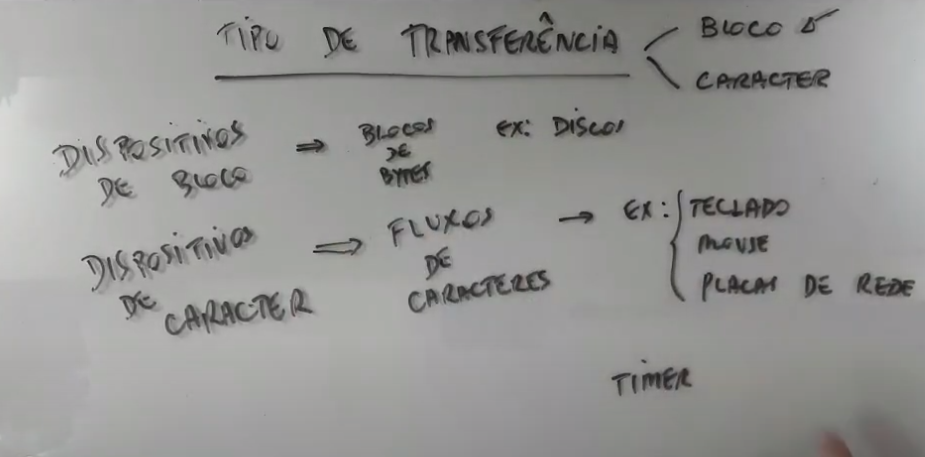 TIPO DE TRANSFERÊNCIA
BLOCO
CARACTER
DISPOSITIVOS DE BLOCO
⇒ BLOCOS DE BYTES
EX: DISCOS
DISPOSITIVOS DE CARACTER
⇒ FLUXOS DE CARACTERES
→ EX: TECLADO
MOUSE
PLACAS DE REDE
TIMER